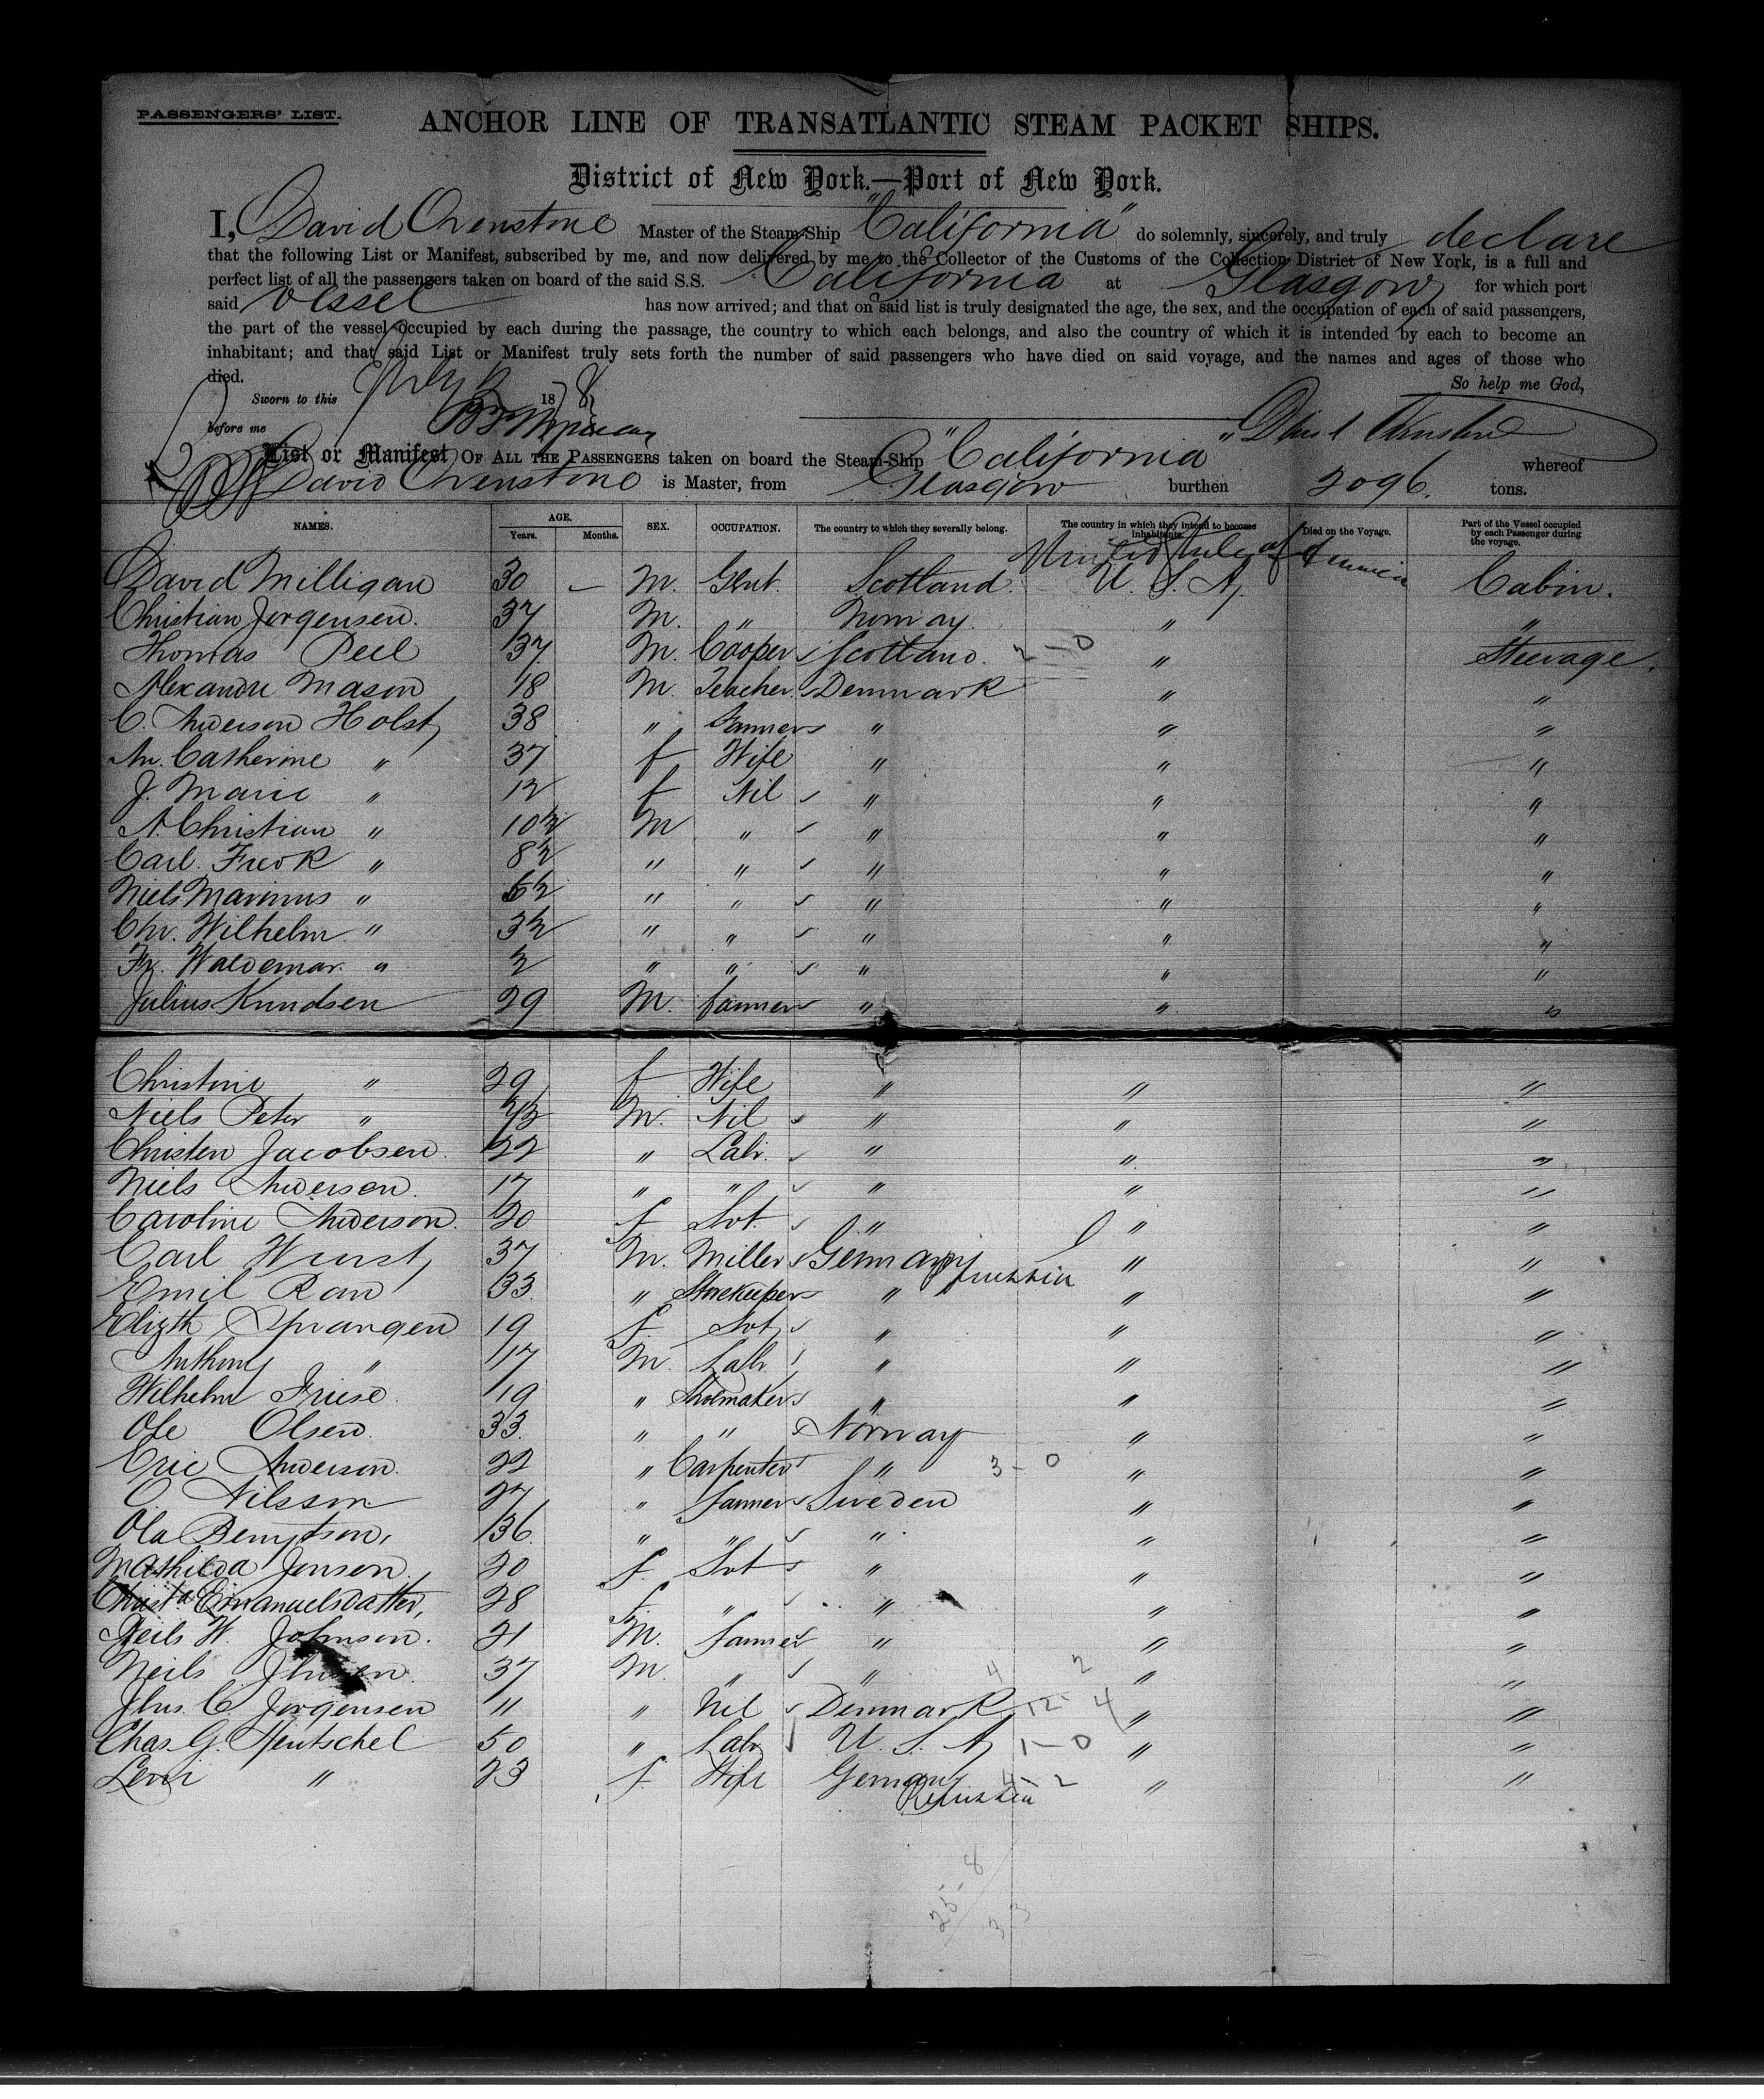 PASSENGERS' LIST.
ANCHOR LINE OF TRANSATLANTIC STEAM PACKET SHIPS.
District of New York.—Port of New York.
I, David Ovenstone Master of the Steam-Ship "California" do solemnly, sincerely, and truly declare
that the following List or Manifest, subscribed by me, and now delivered by me to the Collector of the Customs of the Collection District of New York, is a full and
perfect list of all the passengers taken on board of the said S.S. California at Glasgow for which port
said Vessel has now arrived; and that on said list is truly designated the age, the sex, and the occupation of each of said passengers,
the part of the vessel occupied by each during the passage, the country to which each belongs, and also the country of which it is intended by each to become an
inhabitant; and that said List or Manifest truly sets forth the number of said passengers who have died on said voyage, and the names and ages of those who
died. So help me God,
Sworn to this July 1878
before me David Ovenstone
List or Manifest OF ALL THE PASSENGERS taken on board the Steam-Ship "California" whereof
David Ovenstone is Master, from Glasgow burthen 2096. tons.
NAMES. AGE. Years. Months. SEX. OCCUPATION. The country to which they severally belong. The country in which they intend to become inhabitants. Died on the Voyage. Part of the Vessel occupied by each Passenger during the voyage.
United States of America
David Milligan 30 — M. Gent. Scotland. U. S. A. Cabin.
Christian Jorgensen. 37 M. " Norway. " "
Thomas Peel 37. M. Cooper Scotland. 2-0 " Steerage.
Alexandre Mason 18 M. Teacher Denmark " "
C. Anderson Holst 38 " Farmer " " "
An. Catherine " 37 f Wife " " "
J. Marie " 12 f Nil " " "
N. Christian " 10½ M " " " "
Carl Fredk " 8½ " " " " "
Niels Marinus " 6½ " " " " "
Chr. Wilhelm " 3½ " " " " "
Fr. Waldemar. " 2 " " " " "
Julius Knudsen 29 M. farmer " " "
Christine " 29 f Wife " " "
Niels Peter " M. Nil " " "
Christen Jacobsen. 22 " Labr. " " "
Niels Anderson. 17 " " " " "
Caroline Anderson. 20 f Svt. " " "
Carl Wurst 37 M. Miller Germany " "
Prussia
Emil Rau 33. " Storekeeper " " "
Elizth Sprangen 19 f. Svt " " "
Anthony " 17 M. Labr " " "
Wilhelm Friese. 19 " Shoemaker " " "
Ole Olsen. 33. " " Norway " "
Eric Anderson. 22 " Carpenter " 3-0 " "
O. Nilsson 27 " farmer Sweden " "
Ola Bengtson, 36 " " " " "
Mathilda Jonson. 20 f. Svt " " "
Christa Emanuelsdatter, 28 f. " " " "
Neils W. Johnson. 21 M. farmer " " "
Neils 37 M " " 4 2 " "
Jhns. C. Jorgensen 11 " Nil Denmark 12-4 " "
Chas. G. Hentschel 50 " Labr U. S. A 1-0 " "
" 23 f. Wife Germany 4-2 " "
25-8
33